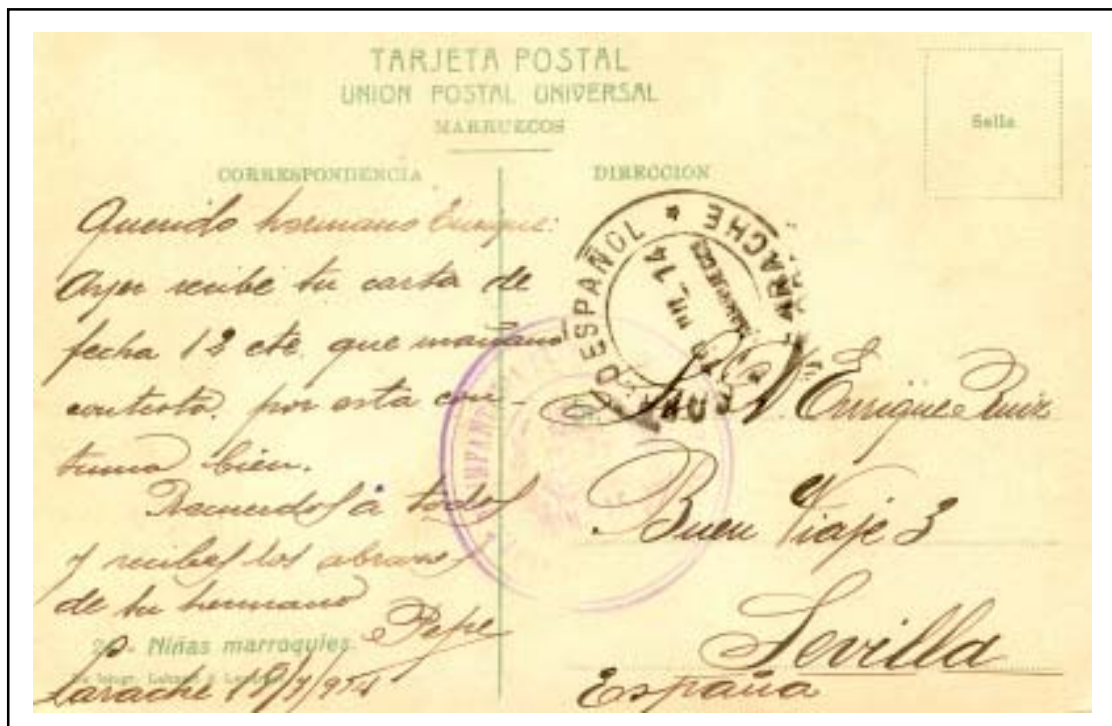 TARJETA POSTAL
UNION POSTAL UNIVERSAL
MARRUECOS
Sello
CORRESPONDENCIA
DIRECCION
Querido hermano Enrique:
Ayer recibí tu carta de
fecha 12 cte. que mañana
contesto, por esta con-
tinuo bien.
Recuerdos á todos
y recibes los abrazos
de tu hermano
Pepe
Niñas marroquies.
Larache
ESPAÑOL * LARACHE
14
Enrique Ruiz
Buen Viaje 3
Sevilla
España